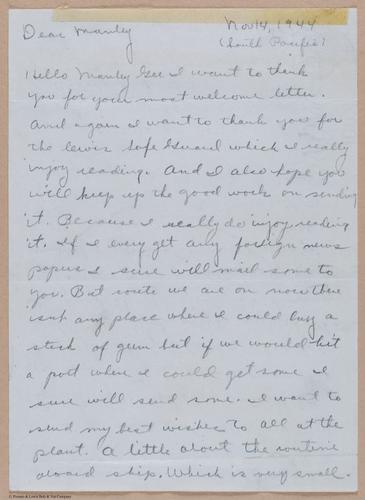 Nov 14, 1944
Dear Manley
(South Pacific)
Hello Manley Gee I want to thank
you for your most welcome letter.
And again I want to thank you for
the lewis Safe Guard which I really
injoy reading. And I also hope you
will keep up the good work on sending
it. Because I really do injoy reading
it. If I every get any foreign news
papers I sure will mail some to
you. But route we are on now there
isnt any place where I could buy a
stick of gum but if we would hit
a port where I could get some I
sure will send some. I want to
send my best wishes to all at the
plant. A little about the routine
aboard ship. Which is very small.